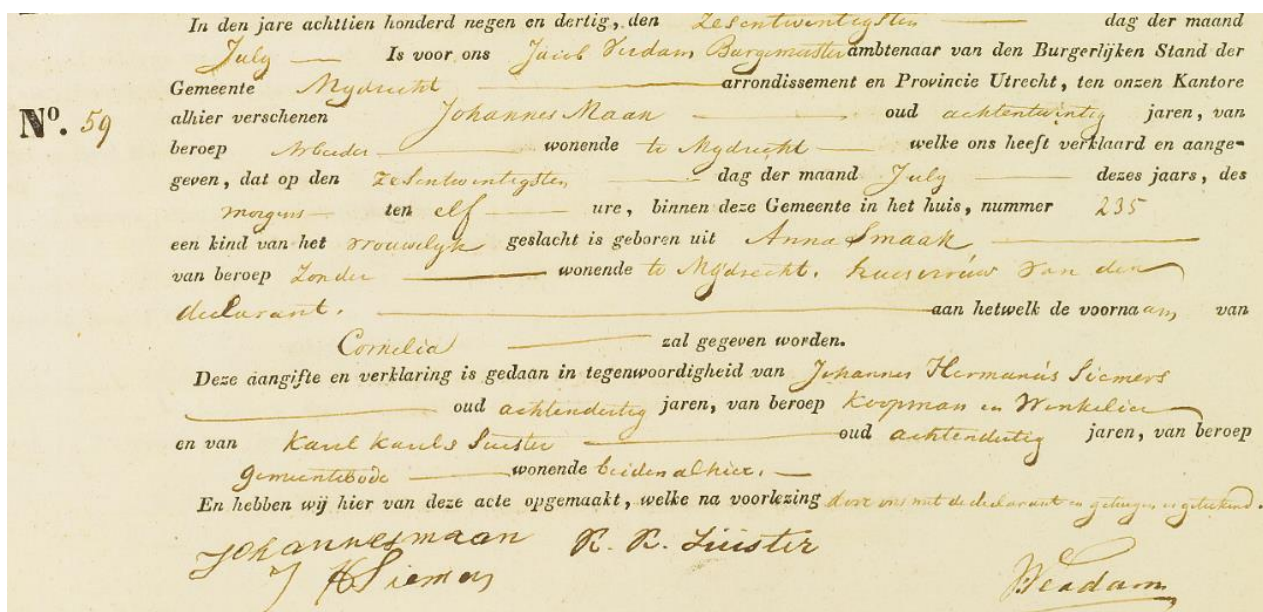 In den jare achttien honderd negen en dertig, den zesentwintigsten dag der maand
July Is voor ons Jacob Verdam Burgemeester ambtenaar van den Burgerlijken Stand der
Gemeente Mydrecht arrondissement en Provincie Utrecht, ten onzen Kantore
No. 59 alhier verschenen Johannes Maan oud achtentwintig jaren, van
beroep Arbeider wonende te Mydrecht welke ons heeft verklaard en aange-
geven, dat op den zesentwintigsten dag der maand July dezes jaars, des
morgens ten elf ure, binnen deze Gemeente in het huis, nummer 235
een kind van het vrouwelyk geslacht is geboren uit Anna Smaak
van beroep Zonder wonende te Mydrecht. huisvrouw van den
declarant. aan hetwelk de voornaam van
Cornelia zal gegeven worden.
Deze aangifte en verklaring is gedaan in tegenwoordigheid van Johannes Hermanus Siemers
oud achtendertig jaren, van beroep Koopman en Winkelier
en van Karel Karels Luister oud achtendertig jaren, van beroep
Gemeentebode wonende beiden alhier.
En hebben wij hier van deze acte opgemaakt, welke na voorlezing door ons met de declarant en getuigen is geteekend.
Johannes maan K. K. Luister
J H Siemers JVerdam